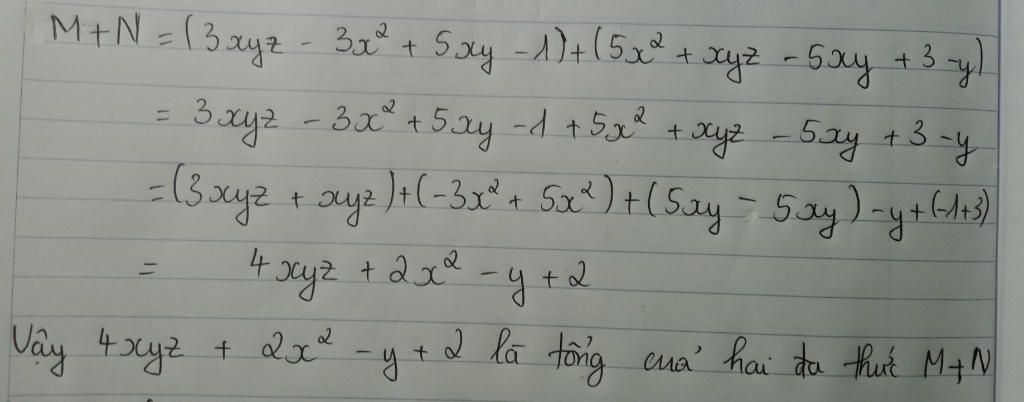 M+N = (3xyz - 3x² + 5xy - 1) + (5x² + xyz - 5xy + 3 - y)
= 3xyz - 3x² + 5xy - 1 + 5x² + xyz - 5xy + 3 - y
= (3xyz + xyz) + (-3x² + 5x²) + (5xy - 5xy) - y + (-1+3)
= 4xyz + 2x² - y + 2
Vậy 4xyz + 2x² - y + 2 là tổng của hai đa thức M+N